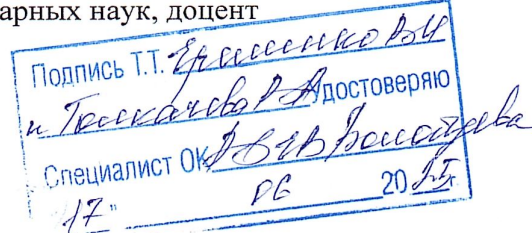 арных наук, доцент
Подпись Т.Т. Еременко В.И
и Толкачева Р А Удостоверяю
Специалист ОК
17 " 06 2025